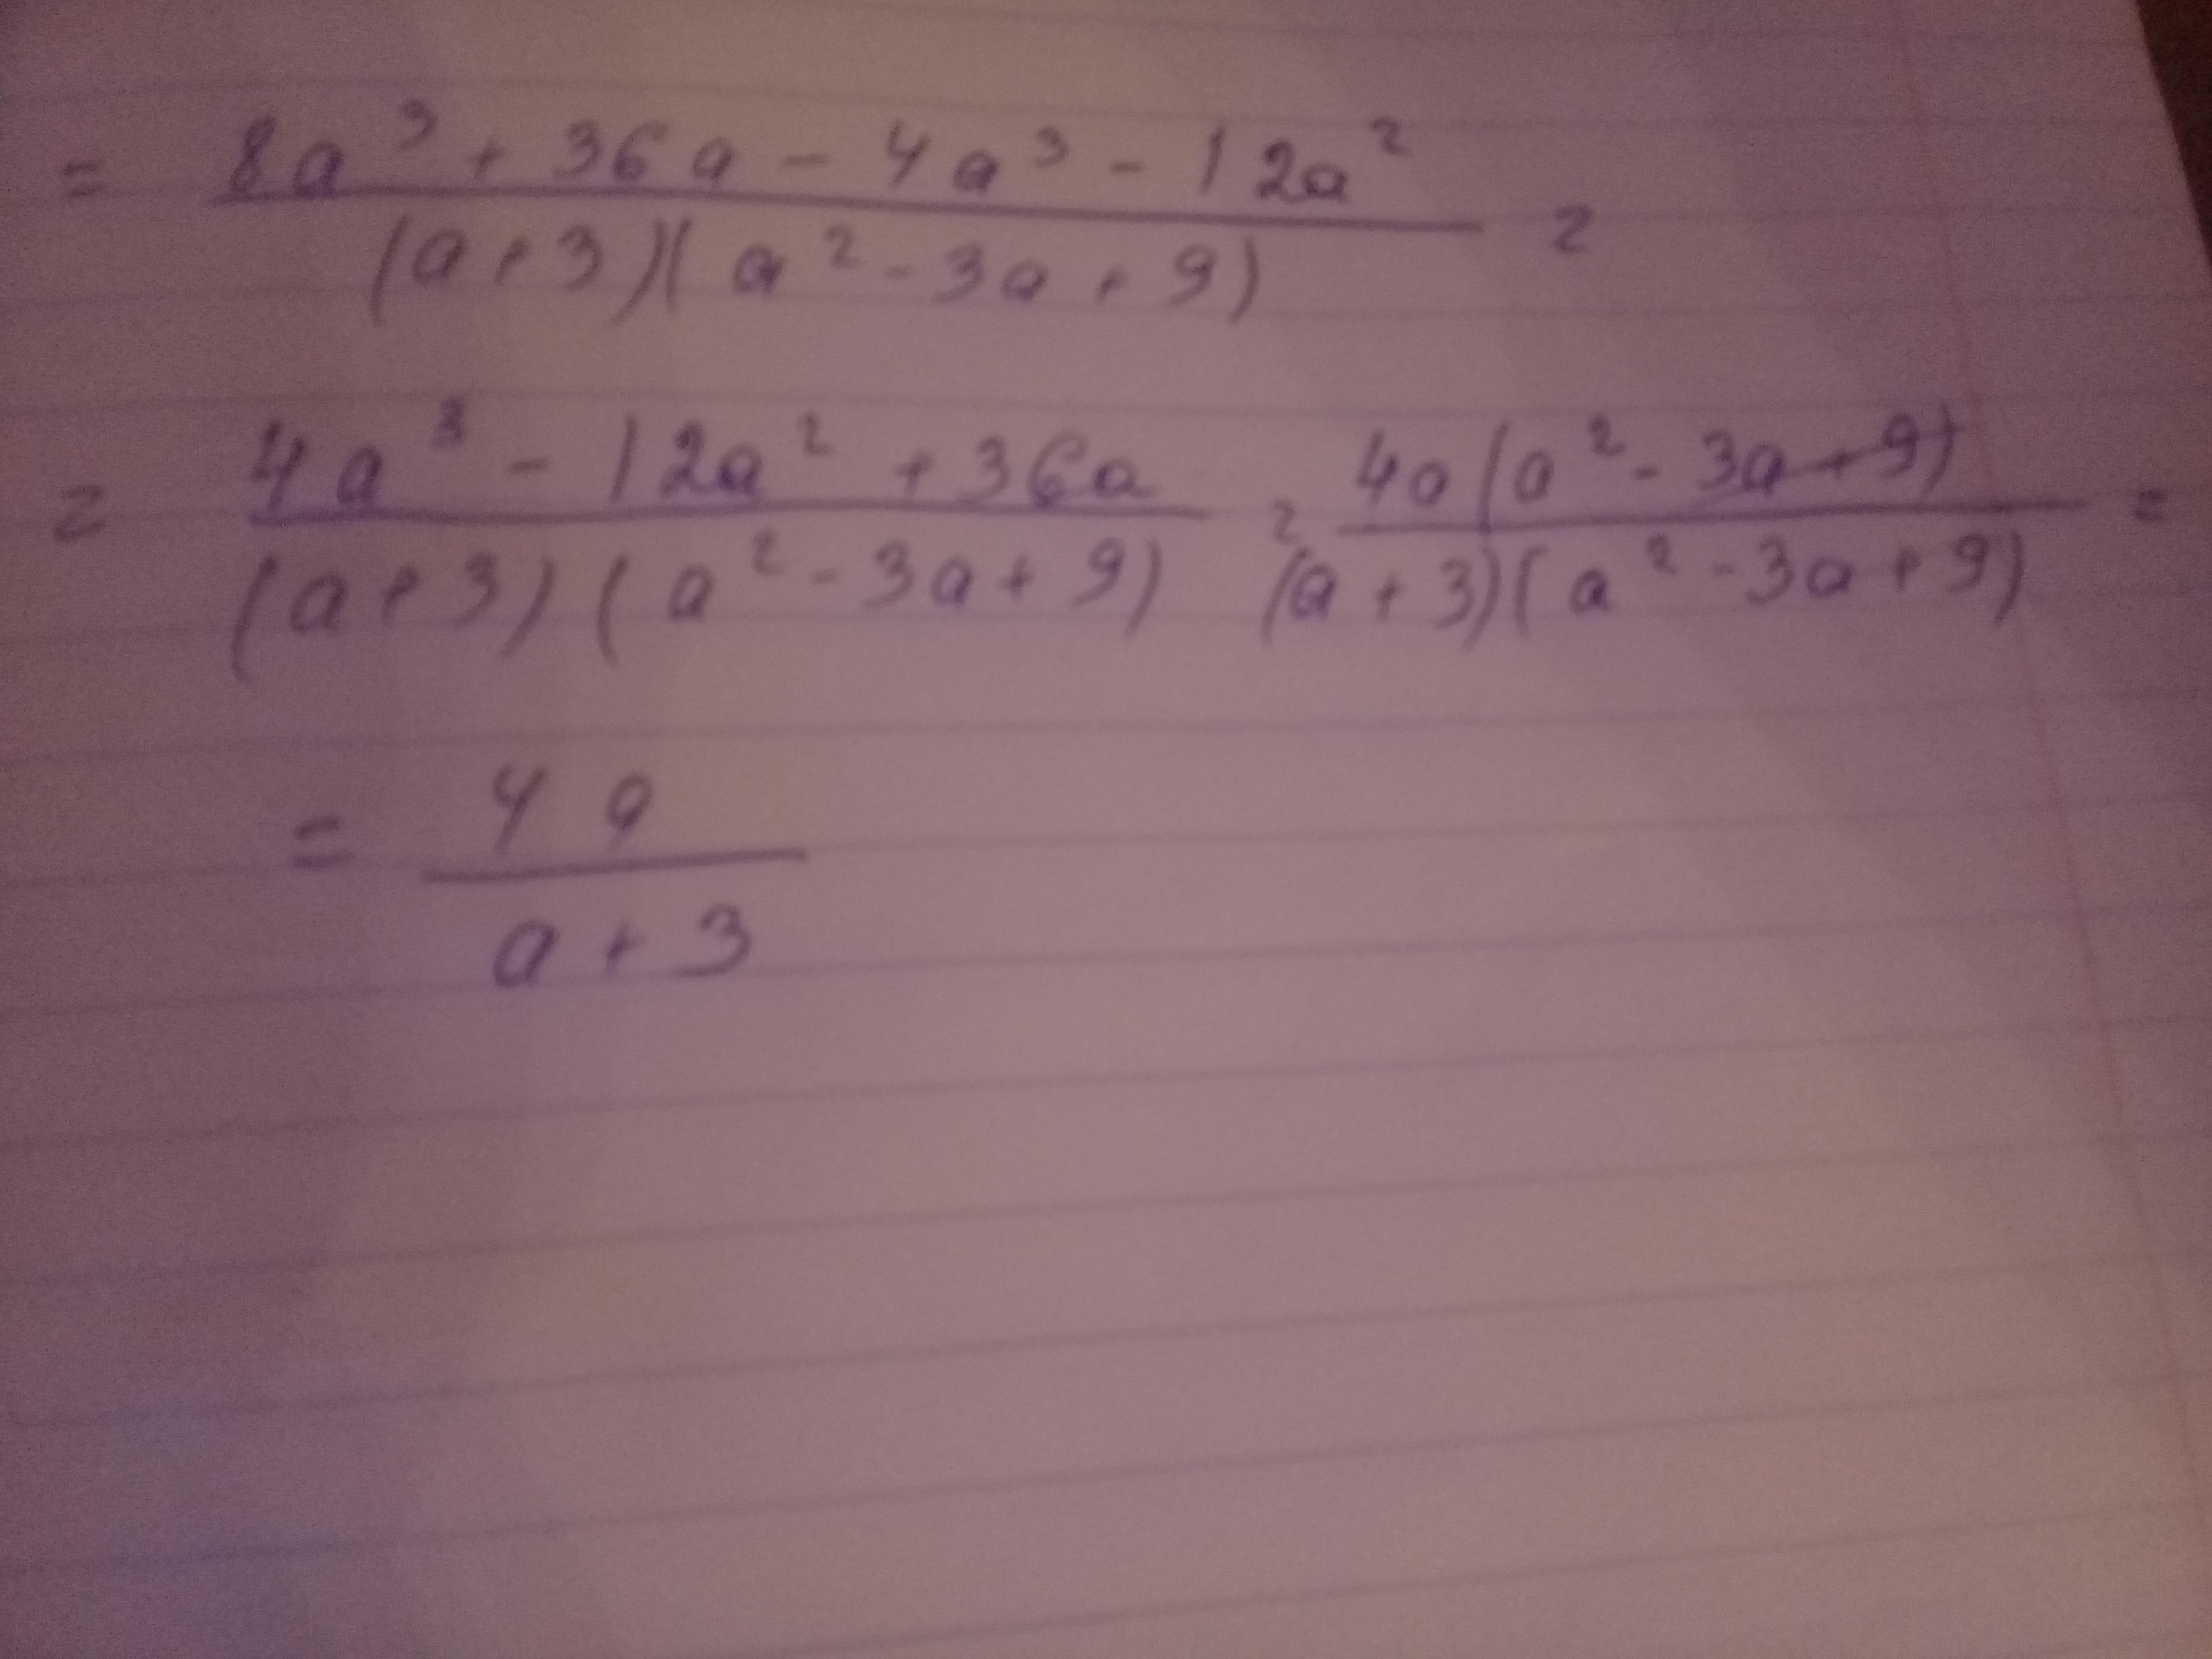 = (8a³ + 36a - 4a³ - 12a²) / ((a+3)(a² - 3a + 9)) =
= (4a³ - 12a² + 36a) / ((a+3)(a² - 3a + 9)) = (4a(a² - 3a + 9)) / ((a+3)(a² - 3a + 9)) =
= 4a / (a + 3)